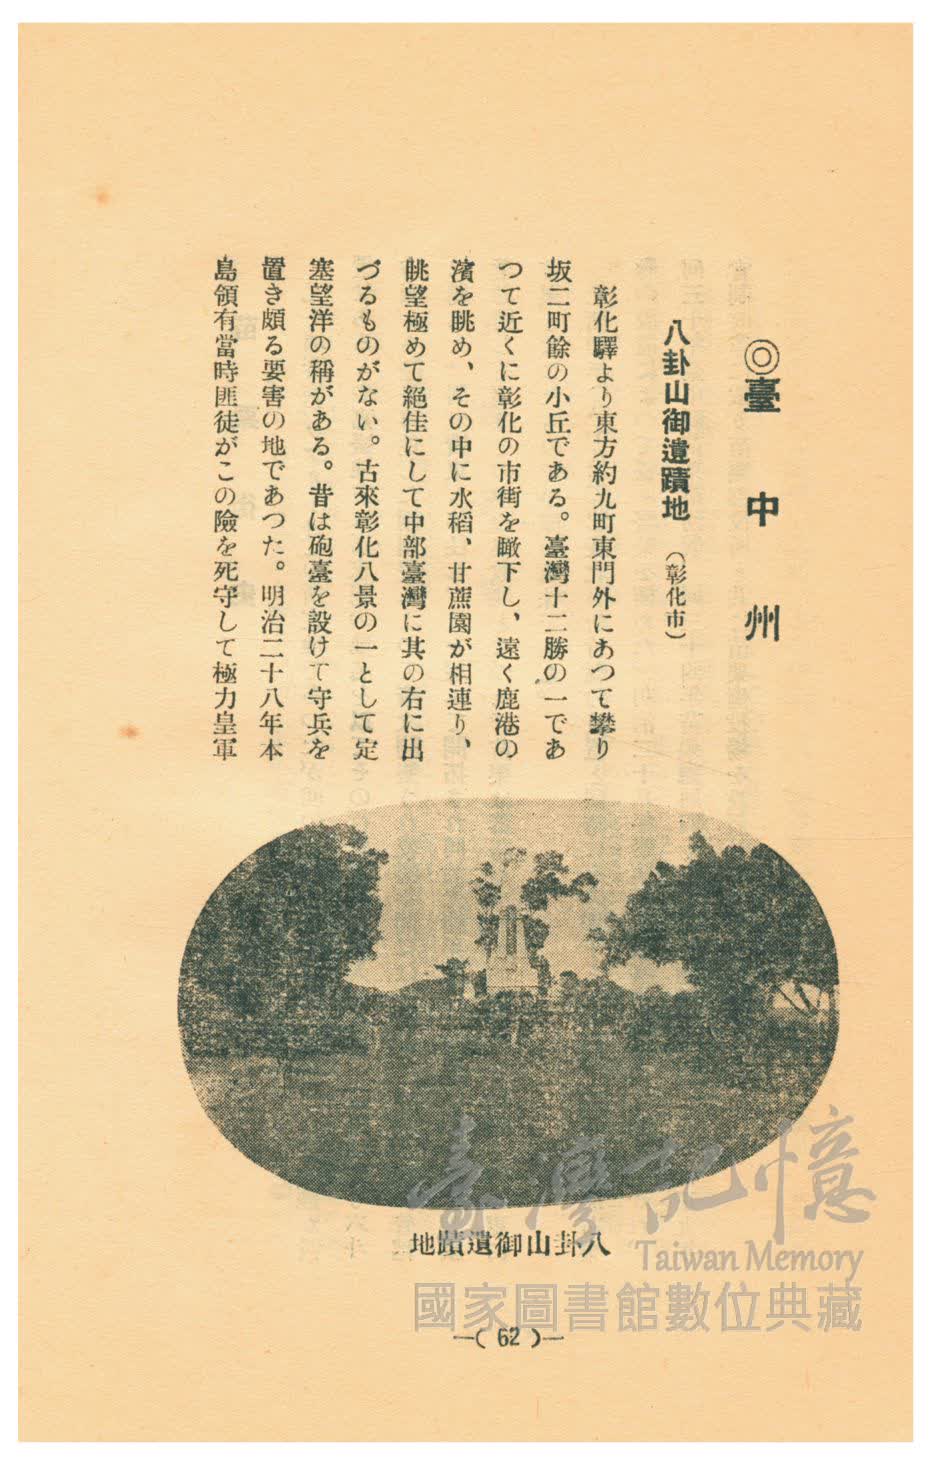 ◎臺中州
八卦山御遺蹟地（彰化市）
彰化驛より東方約九町東門外にあつて攀り
坂二町餘の小丘である。臺灣十二勝の一であ
つて近くに彰化の市街を瞰下し、遠く鹿港の
濱を眺め、その中に水稻、甘蔗園が相連り、
眺望極めて絕佳にして中部臺灣に其の右に出
づるものがない。古來彰化八景の一として定
塞望洋の稱がある。昔は砲臺を設けて守兵を
置き頗る要害の地であつた。明治二十八年本
島領有當時匪徒がこの險を死守して極力皇軍
地蹟遺御山卦八
臺灣記憶
Taiwan Memory
國家圖書館數位典藏
—( 62 )—